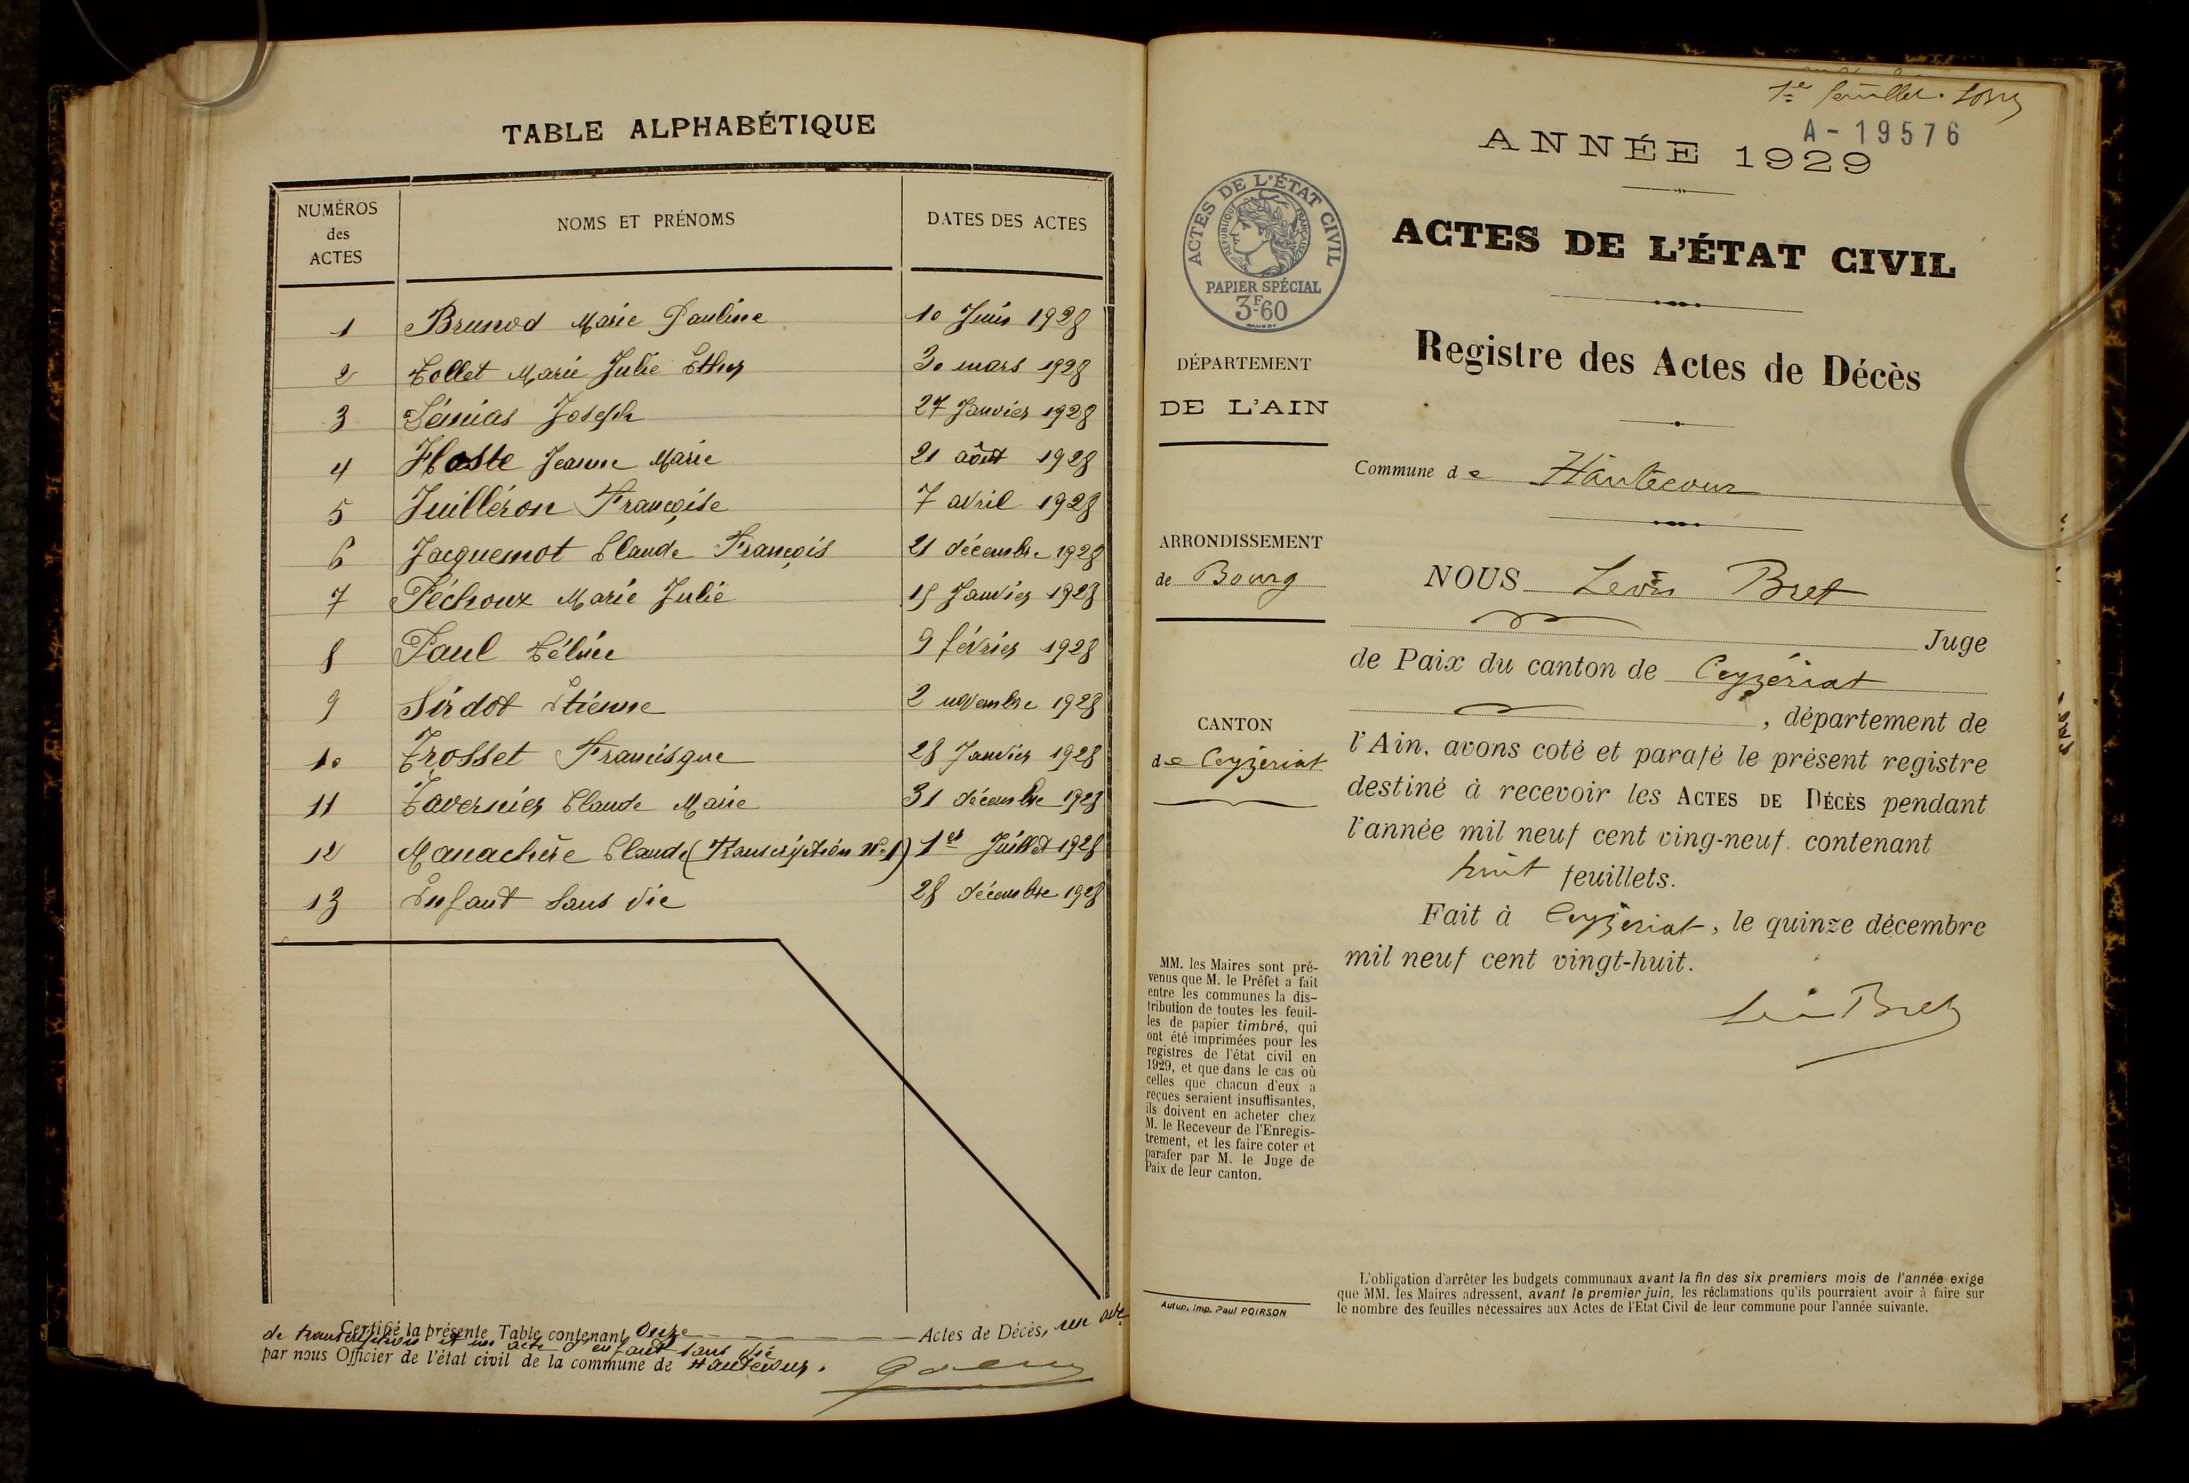 TABLE ALPHABÉTIQUE
NUMÉROS des ACTES
NOMS ET PRÉNOMS
DATES DES ACTES
1 Brunod Marie Pauline 10 Juin 1928
2 Collet Marie Julie Esther 30 mars 1928
3 Génias Joseph 27 Janvier 1928
4 Hoste Jeanne Marie 21 août 1928
5 Juilléron Françoise 7 avril 1928
6 Jacquemot Claude François 21 décembre 1928
7 Péchoux Marie Julie 15 Janvier 1928
8 Paul Célinie 9 février 1928
9 Sirdot Etienne 2 novembre 1928
10 Trosset Francisque 28 Janvier 1928
11 Tavernier Claude Marie 31 décembre 1928
12 Manachère Claude (Transcription No 1) 1er Juillet 1928
13 Enfant sans vie 28 décembre 1928
Certifié la présente Table contenant Onze Actes de Décès, un acte
de transcription et un acte d'enfant sans vie
par nous Officier de l'état civil de la commune de Hautecour.
1er feuillet.
A-19576
ANNÉE 1929
ACTES DE L'ÉTAT CIVIL
RÉPUBLIQUE FRANÇAISE
PAPIER SPÉCIAL
3F60
ACTES DE L'ÉTAT CIVIL
Registre des Actes de Décès
DÉPARTEMENT
DE L'AIN
Commune de Hautecour
ARRONDISSEMENT
de Bourg
CANTON
de Ceyzériat
NOUS Léon Bret
Juge
de Paix du canton de Ceyzériat
, département de
l'Ain, avons coté et parafé le présent registre
destiné à recevoir les ACTES DE DÉCÈS pendant
l'année mil neuf cent ving-neuf, contenant
huit feuillets.
Fait à Ceyzériat, le quinze décembre
mil neuf cent vingt-huit.
Léon Bret
MM. les Maires sont pré-
venus que M. le Préfet a fait
entre les communes la dis-
tribution de toutes les feuil-
les de papier timbré, qui
ont été imprimées pour les
registres de l'état civil en
1929, et que dans le cas où
celles que chacun d'eux a
reçues seraient insuffisantes,
ils doivent en acheter chez
M. le Receveur de l'Enregis-
trement, et les faire coter et
parafer par M. le Juge de
Paix de leur canton.
Autun, Imp. Paul POIRSON
L'obligation d'arrêter les budgets communaux avant la fin des six premiers mois de l'année exige
que MM. les Maires adressent, avant le premier juin, les réclamations qu'ils pourraient avoir à faire sur
le nombre des feuilles nécessaires aux Actes de l'Etat Civil de leur commune pour l'année suivante.